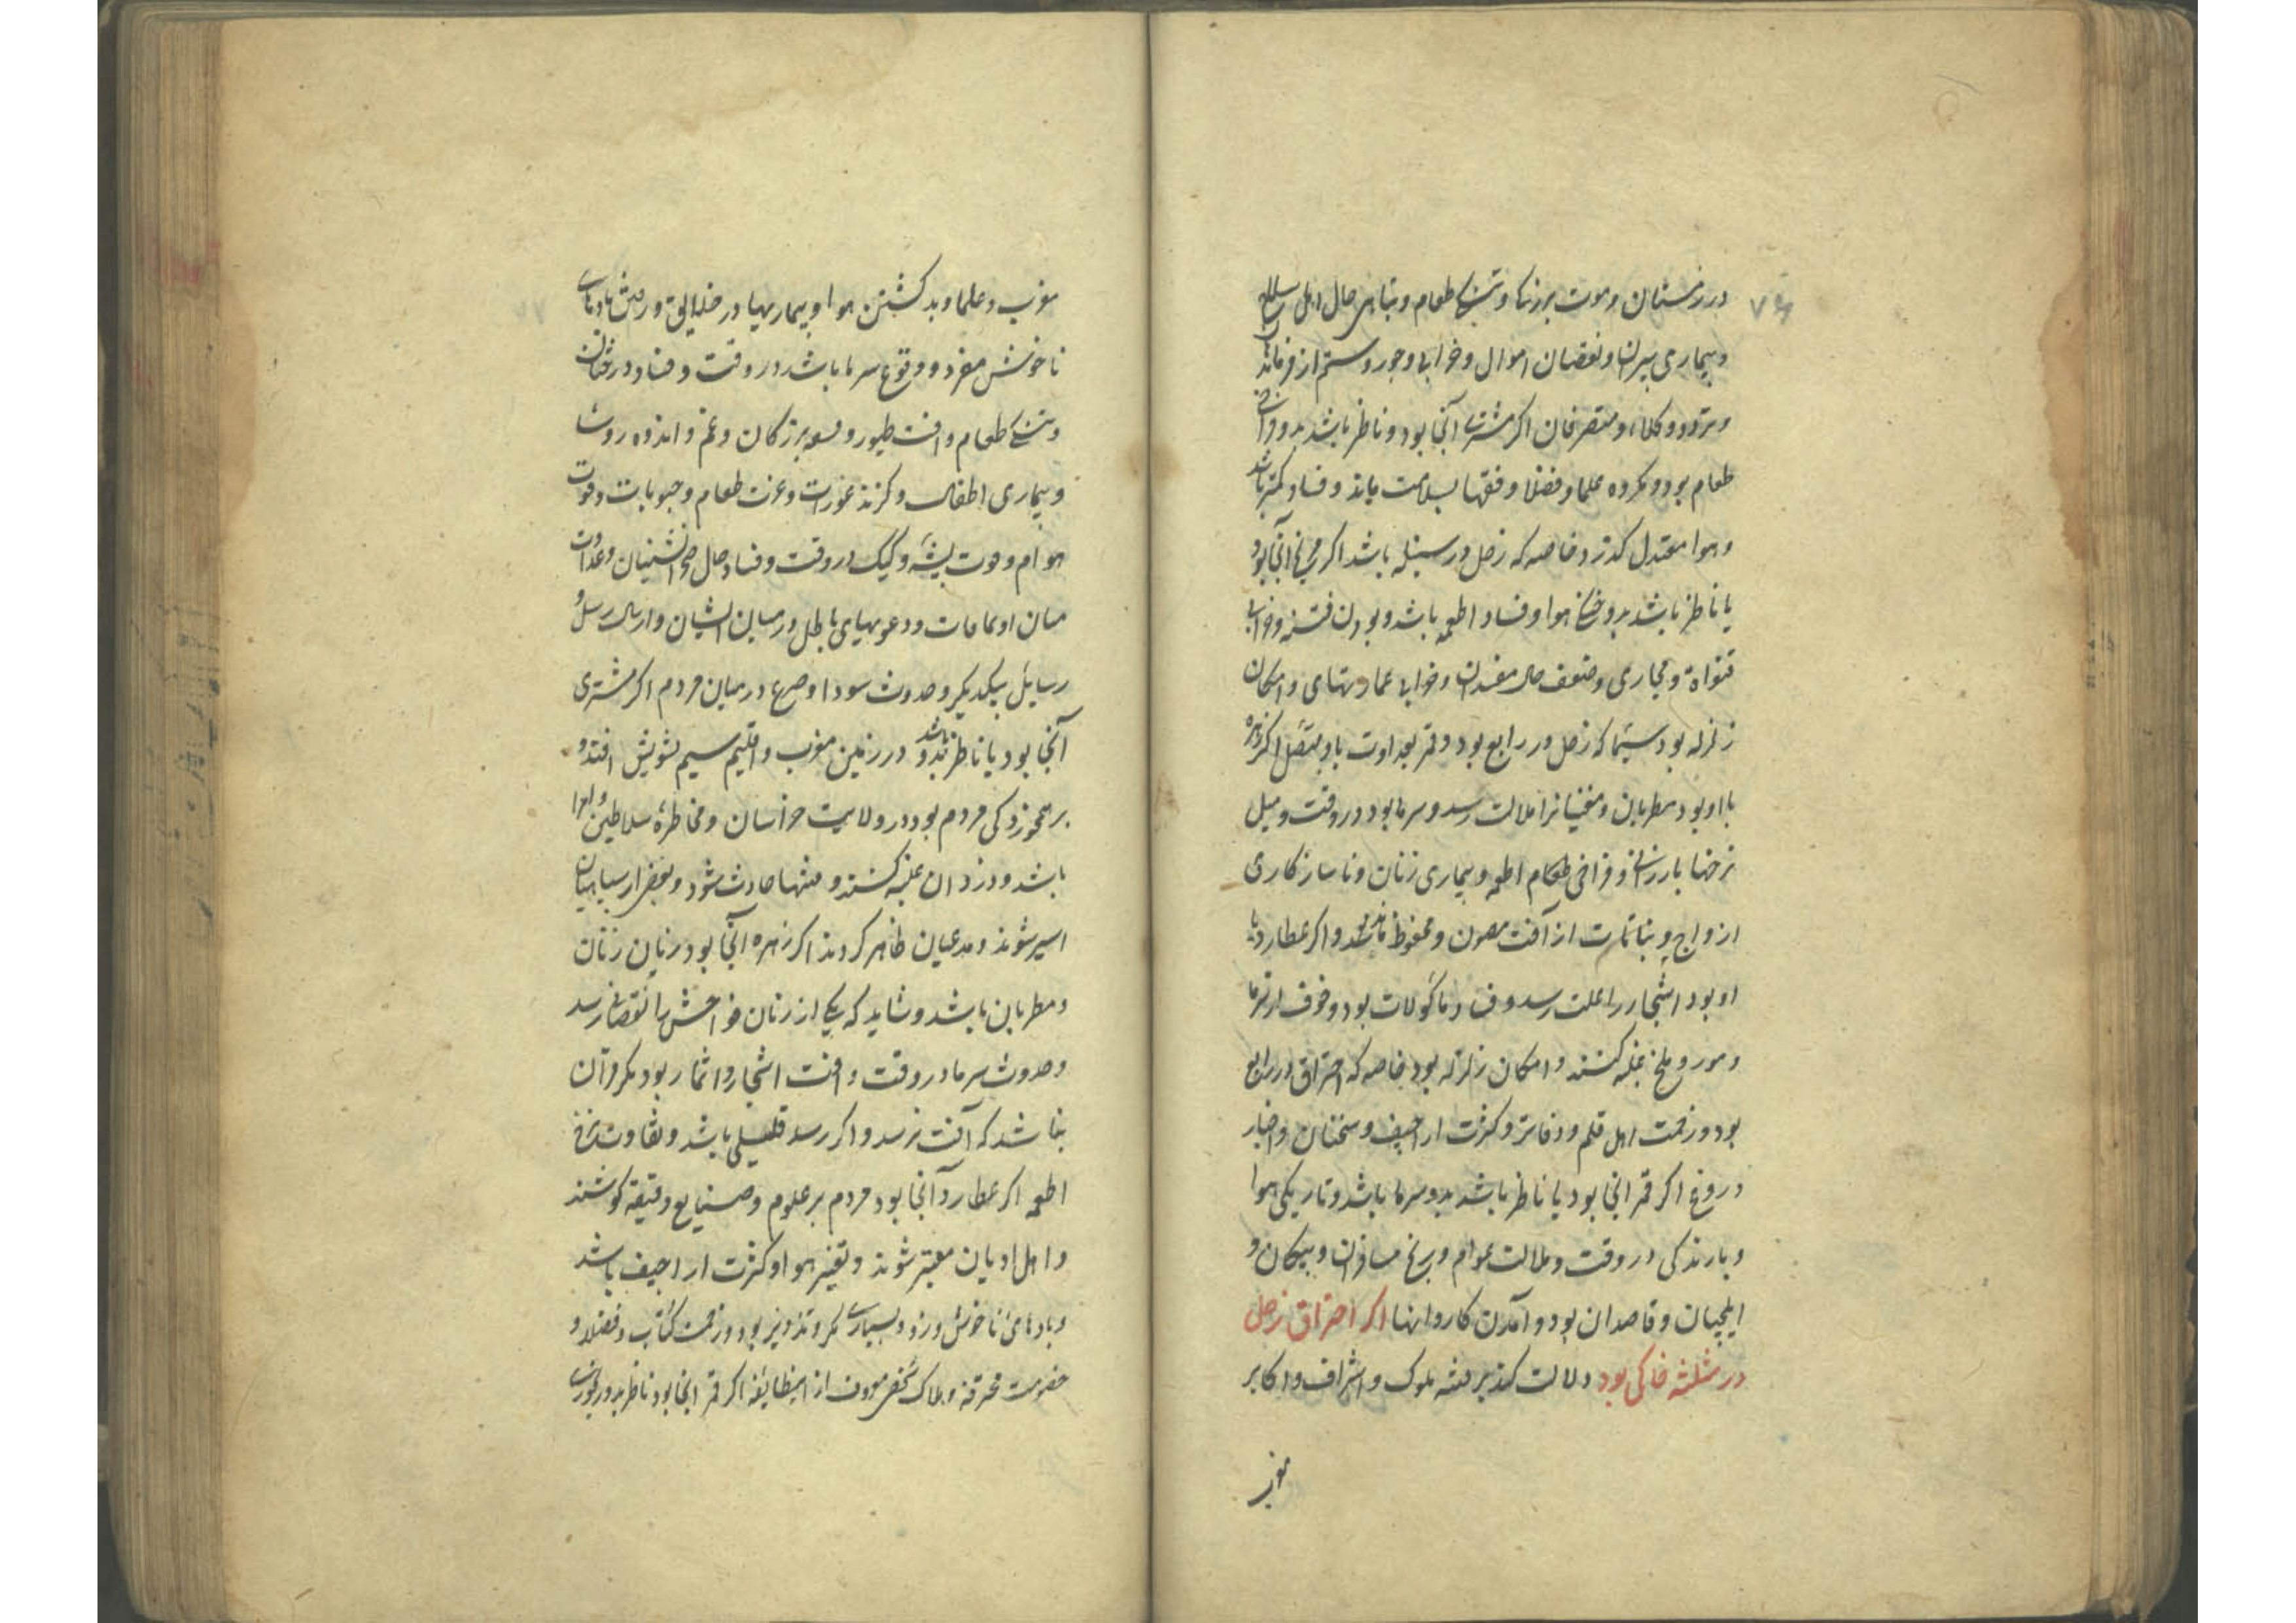 در زمستان و موت برزکان و تنکی طعام و تباهی حال اهل سلاح
و بیماری پیران و نقصان اموال و خرابی و جور و ستم از فرماند
و تردد وکلاء و متصرفان اکر مشتری آنجا بود و ناظر باشد بدو
طعام بود و مکروه علما و فضلا و فقها بسلامت ماند و فساد کمتر باشد
و هوا معتدل کذرد خاصه که زحل در سنبله باشد اکر مریخ آنجا بود
یا ناظر باشد بدو هوا و فساد اطعمه باشد و بودن فتنه و خرابی
قنواة و مجاری و ضعف حال مفسدان و خرابی عمارتهای و امکان
زلزله بود سیما که زحل در رابع بود و قمر بعداوت باو متصل اکر زهره
با او بود مطربان و مغنیانرا ملالت رسد و سرما بود در وقت و میل
نرخها بارزانی و فراخی طعام اطعمه و بیماری زنان و ناسازکاری
ازواج و نباتات از آفت مصون و محفوظ ماند و اکر عطارد با
او بود اشجار را علت رسد و فساد ماکولات بود و خوف از سرما
و مور و ملخ غلبه کنند و امکان زلزله بود خاصه که احتراق در رابع
بود و زحمت اهل قلم و دفاتر و کثرت اراجیف و سخنان و اخبار
دروغ اکر قمر انجا بود یا ناظر باشد بدو سرما باشد و تاریکی هوا
و بارندکی در وقت و ملالت عوام و رنج مسافران و پیکان و
ایلچیان و قاصدان بود و آمدن کاروانها اکر احتراق زحل
در مثلثه خاکی بود دلالت کند بر فتنه ملوک و اشراف و اکابر
مغرب
مغرب و علما و بد کشتن هوا و بیماریها در خلایق و رفتن بادهای
ناخوش مفرد و وقوع سرما باشد در وقت و فساد درختان
و تنکی طعام و افت طیور و برزکان و غم و اندوه روسا
و بیماری اطفال و کزند عورات و عزت طعام و حبوبات و قوت
هوام و موت پشه و کیک در وقت و فساد حال صحرانشینان و عداوت
میان و دعویهای باطل در میان ایشان و ارسال رسل و
رسایل بیکدیکر و حدوث سودا و صرع در میان مردم اکر مشتری
آنجا بود یا ناظر باشد بدو در زمین مغرب و اقلیم سیم تشویش افتد و
مردم بود در ولایت خراسان و مخاطره سلاطین و امرا
باشد و دزدان غلبه کنند و فتنها حادث شود و بعضی از سپاهیان
اسیر شوند و مدعیان ظاهر کردند اکر زهره آنجا بود زیان زنان
و مطربان باشد و شاید که یکی از زنان خواص را نقصانی رسد
و حدوث سرما در وقت و افت اشجار و اثمار بود مکر قران
باشد که آفت نرسد و اکر رسد قلیلی باشد و تفاوت نرخ
اطعمه اکر عطارد آنجا بود مردم بر علوم و صنایع دقیقه کوشند
و اهل ادیان معتبر شوند و تغیر هوا و کثرت اراجیف باشد
و بادهای ناخوش وزد و بسیاری مکر و تزویر بود و زحمت کتاب و فضلا و
خصومت محترفه و هلاک شخصی معروف از اینطایفه اکر قمر انجا بود ناظر بدو